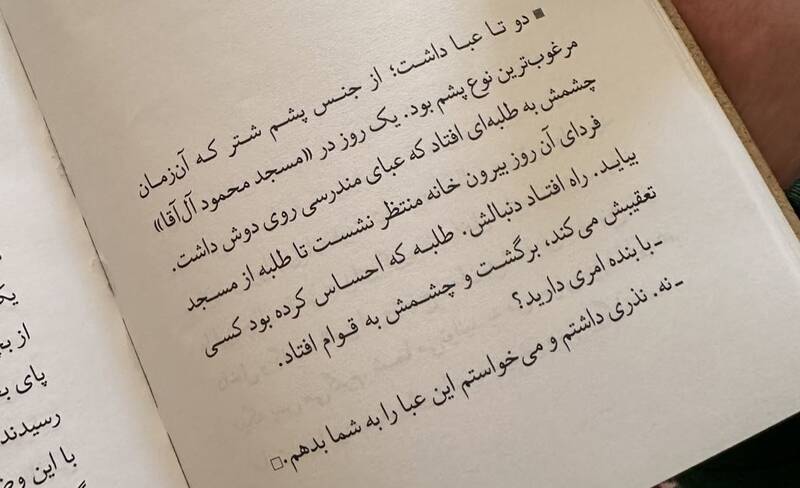 ■ دو تا عبا داشت؛ از جنس پشم شتر که آن‌زمان
مرغوب‌ترین نوع پشم بود. یک روز در «مسجد محمود آل‌آقا»
چشمش به طلبه‌ای افتاد که عبای مندرسی روی دوش داشت.
فردای آن روز بیرون خانه منتظر نشست تا طلبه از مسجد
بیاید. راه افتاد دنبالش. طلبه که احساس کرده بود کسی
تعقیبش می کند، برگشت و چشمش به قوام افتاد.
ـ با بنده امری دارید؟
ـ نه. نذری داشتم و می‌خواستم این عبا را به شما بدهم.□
یک
از بچ
پای ب
رسیدند
با این وض